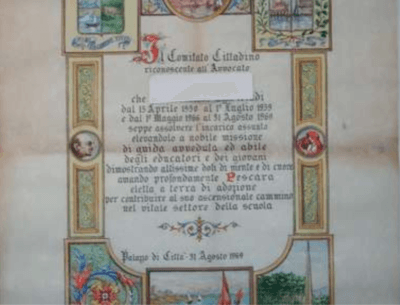 Il Comitato Cittadino
riconoscente all'Avvocato
che
dal 15 Aprile 1958 al 1° Luglio 1959
e dal 1° Maggio 1966 al 31 Agosto 1969
seppe assolvere l'incarico assunto
elevandolo a nobile missione
di guida avveduta ed abile
degli educatori e dei giovani
dimostrando altissime doti di mente e di cuore
amando profondamente Pescara
eletta a terra di adozione
per contribuire al suo ascensionale cammino
nel vitale settore della scuola
Palazzo di Città 31 Agosto 1969